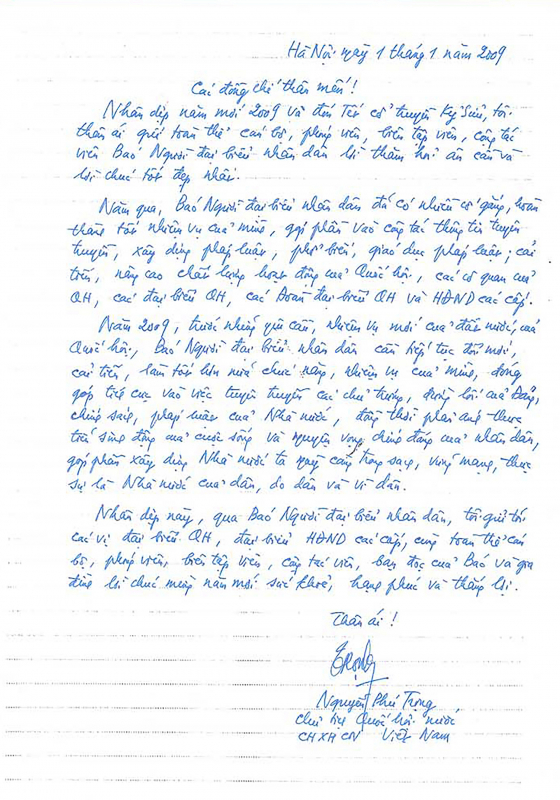 Hà Nội ngày 1 tháng 1 năm 2009
Các đồng chí thân mến!
Nhân dịp năm mới 2009 và đón Tết cổ truyền Kỷ Sửu, tôi
thân ái gửi toàn thể cán bộ, phóng viên, biên tập viên, cộng tác
viên Báo Người đại biểu nhân dân lời thăm hỏi ân cần và
lời chúc tốt đẹp nhất.
Năm qua, Báo Người đại biểu nhân dân đã có nhiều cố gắng, hoàn
thành tốt nhiệm vụ của mình, góp phần vào công tác thông tin tuyên
truyền, xây dựng pháp luật, phổ biến, giáo dục pháp luật; cải
tiến, nâng cao chất lượng hoạt động của Quốc hội, các cơ quan của
QH, các đại biểu QH, các Đoàn đại biểu QH và HĐND các cấp.
Năm 2009, trước những yêu cầu, nhiệm vụ mới của đất nước, của
Quốc hội, Báo Người đại biểu nhân dân cần tiếp tục đổi mới,
cải tiến, làm tốt hơn nữa chức năng, nhiệm vụ của mình, đóng
góp tích cực vào việc tuyên truyền các chủ trương, đường lối của Đảng,
chính sách, pháp luật của Nhà nước, đồng thời phản ánh thực
tiễn sống động của cuộc sống và nguyện vọng chính đáng của nhân dân,
góp phần xây dựng Nhà nước ta ngày càng trong sạch, vững mạnh, thực
sự là Nhà nước của dân, do dân và vì dân.
Nhân dịp này, qua Báo Người đại biểu nhân dân, tôi gửi tới
các vị đại biểu QH, đại biểu HĐND các cấp, cùng toàn thể cán
bộ, phóng viên, biên tập viên, cộng tác viên, bạn đọc của Báo và gia
đình lời chúc mừng năm mới sức khoẻ, hạnh phúc và thắng lợi.
Thân ái!
Trọng
Nguyễn Phú Trọng
Chủ tịch Quốc hội nước
CHXHCN Việt Nam